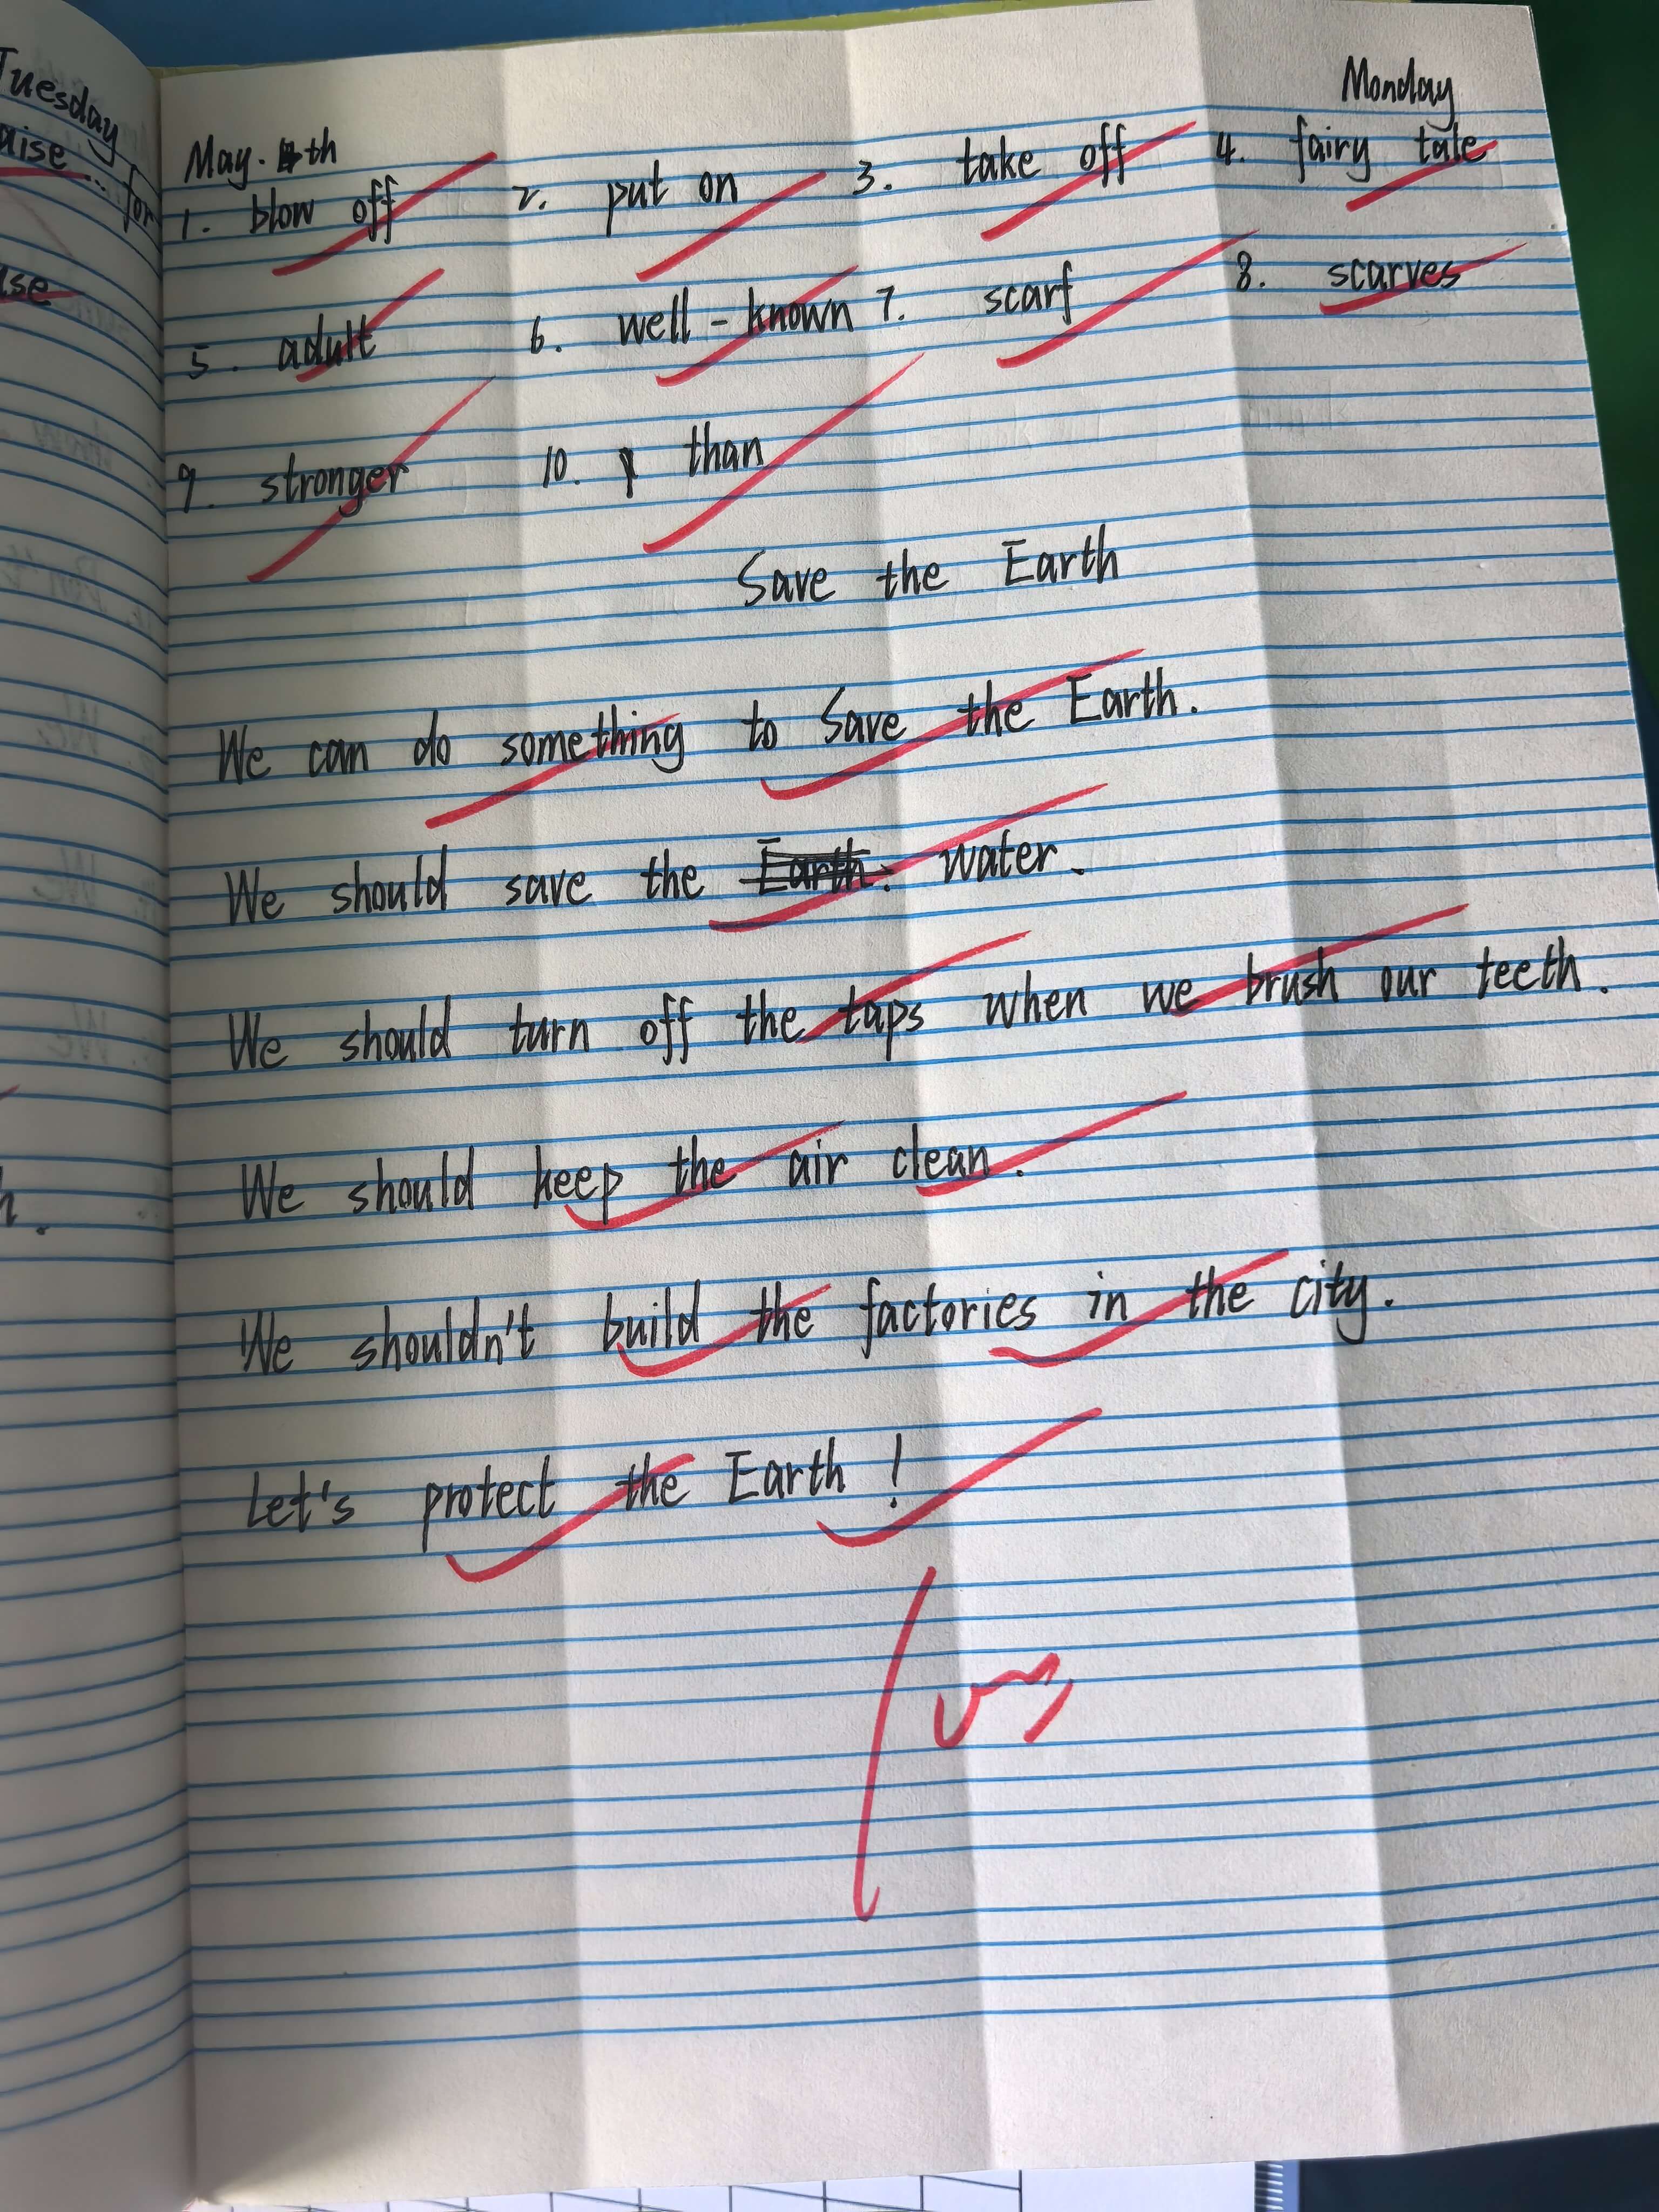 Tuesday
for
Monday
May. th
1. blow off 2. put on 3. take off 4. fairy tale
5. adult 6. well-known 7. scarf 8. scarves
9. stronger 10. than
Save the Earth
We can do something to Save the Earth.
We should save the Earth. water.
We should turn off the taps when we brush our teeth.
We should keep the air clean.
We shouldn't build the factories in the city.
Let's protect the Earth!